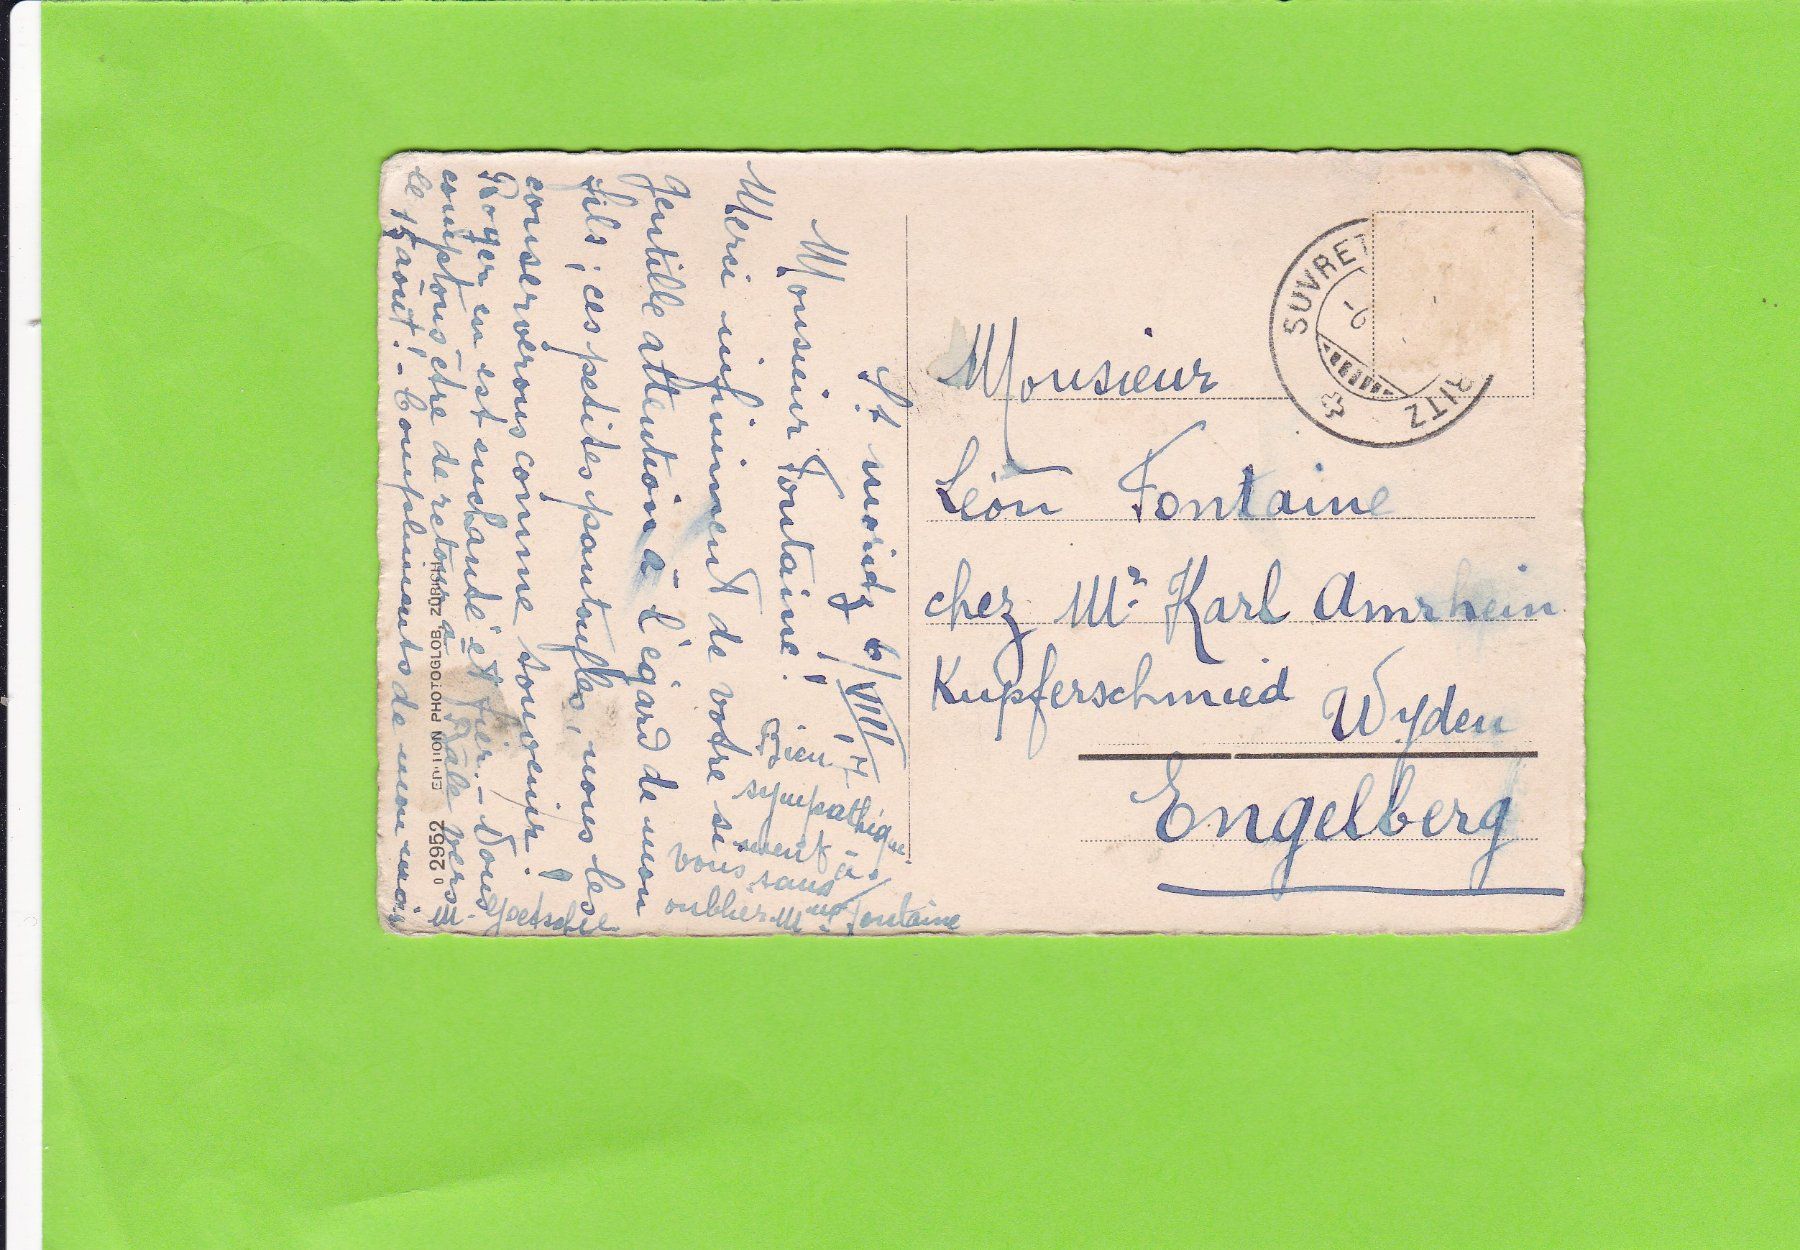 St moritz 6/VIII, 47
Monsieur Fontaine!
Merci infiniment de votre si
Jentille attention à l'égard de mon
fils; ces petites pantoufles, nous les
conserverons comme souvenir!
Roger en est enchanté et fier. - Nous
comptons être de retour à Bâle vers
le 15 août! - Compliments de mon mari
Bien
sympathiqu.
ment à
vous sans
oublier Mme Fontaine
M. Goetschel.
0 2952 EDITION PHOTOGLOB ZÜRICH
SUVRET
-6
RITZ
Monsieur
Léon Fontaine
chez Mr Karl Amrhein
Kupferschmied
Wyden
Engelberg